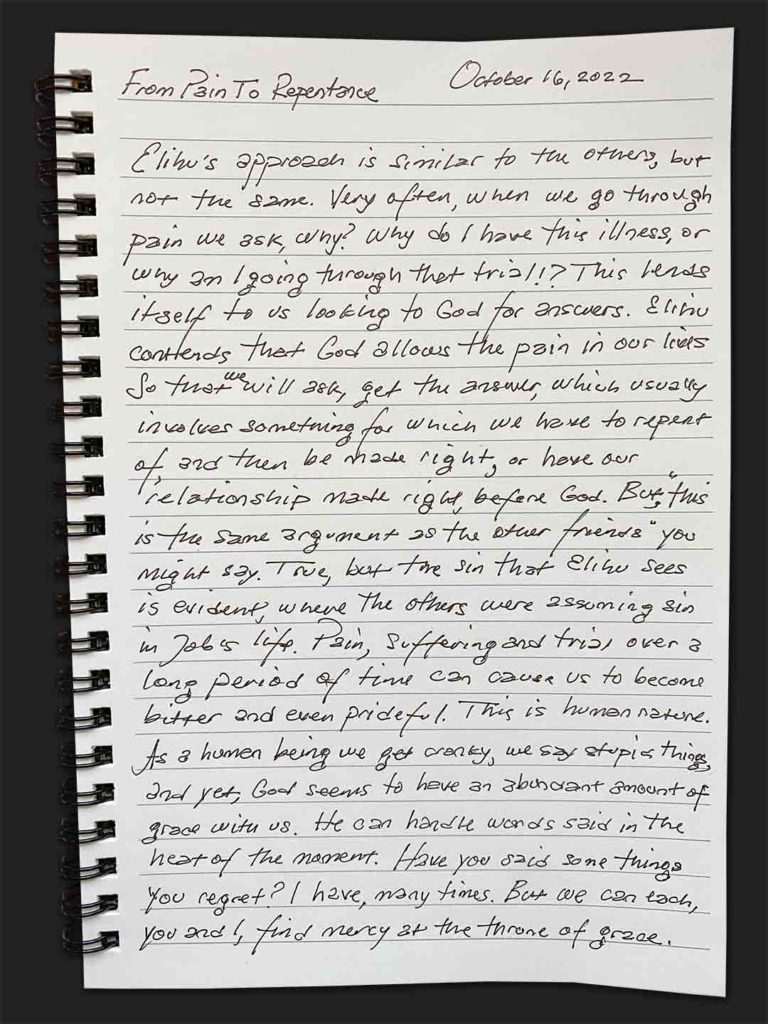 From Pain To Repentance October 16, 2022
Elihu's approach is similar to the others, but
not the same. Very often, when we go through
pain we ask, why? Why do I have this illness, or
why am I going through that trial!? This lends
itself to us looking to God for answers. Elihu
contends that God allows the pain in our lives
So that we will ask, get the answer, which usually
involves something for which we have to repent
of, and then be made right, or have our
relationship made right, before God. But, "this
is the same argument as the other friends" you
might say. True, but the sin that Elihu sees
is evident, where the others were assuming sin
in Job's life. Pain, Suffering and trial over a
long period of time can cause us to become
bitter and even prideful. This is human nature.
As a human being we get cranky, we say stupid things,
and yet, God seems to have an abundant amount of
grace with us. He can handle words said in the
heat of the moment. Have you said some things
you regret? I have, many times. But we can each,
you and I, find mercy at the throne of grace.